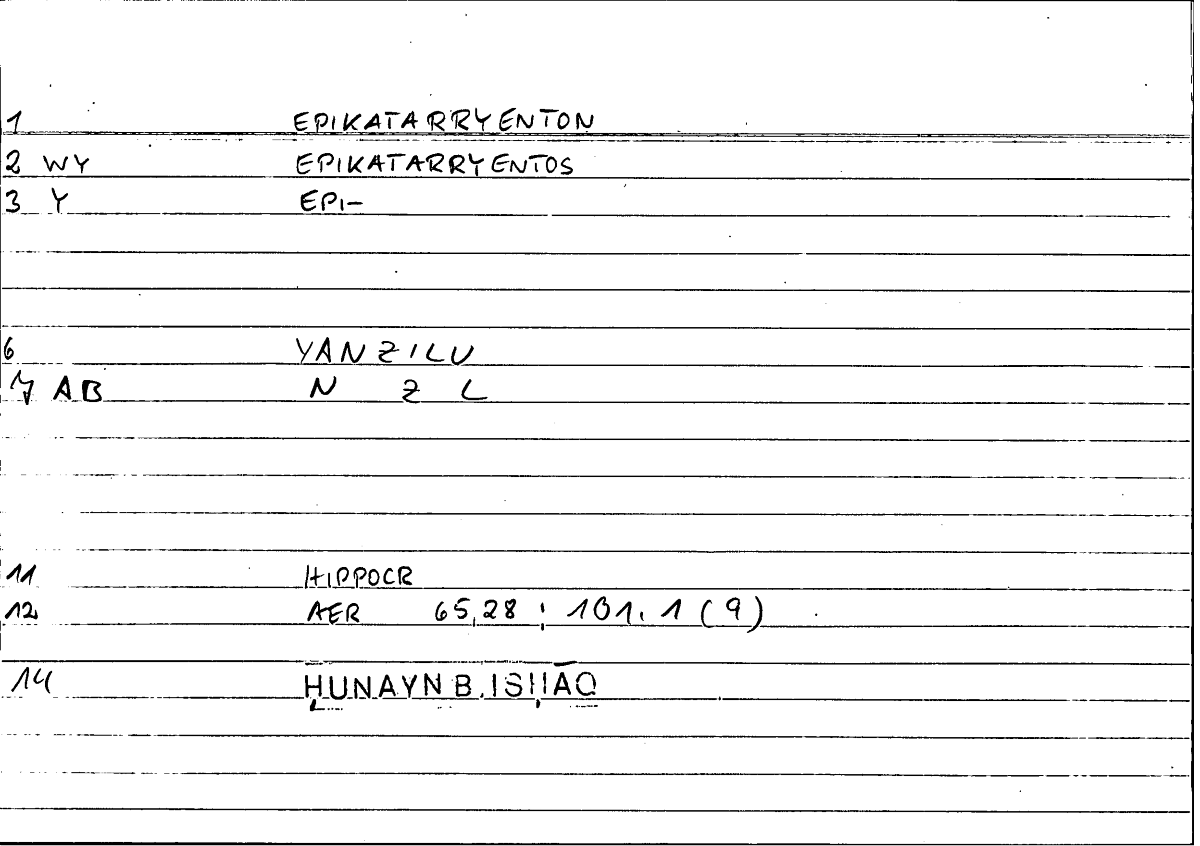 1 EPIKATARRYENTON
2 WY EPIKATARRYENTOS
3 Y EPI-
6 YANZILU
7 AB N Z L
11 HIPPOCR
12 AER 65,28 ; 101.1 (9)
14 ḤUNAYN B. ISḤĀQ